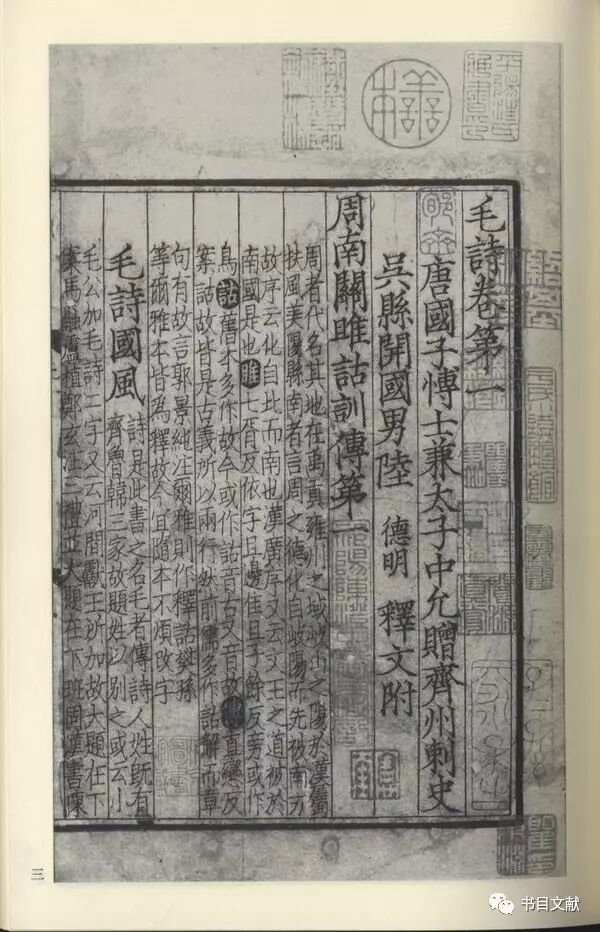 毛詩卷第一
唐國子愽士兼太子中允贈齊州刺史
吳縣開國男陸 德明 釋文附
周南關雎詁訓傳第一
周者代名其地在禹貢雍州之域岐山之陽於漢屬
扶風美陽縣南者言周之德化自岐陽而先被南方
故序云化自北而南也漢廣序又云文王之道被於
南國是也雎七胥反依字且邊隹且子餘反旁或作
鳥詁舊本多作故今或作詁音古又音故傳直戀反
案詁故皆是古義所以兩行然前儒多作詁解而章
句有故言郭景純注爾雅則作釋詁樊孫
等爾雅本皆為釋故今宜隨本不煩改字
毛詩國風
詩是此書之名毛者傳詩人姓既有
齊魯韓三家故題姓以別之或云小
毛公加毛詩二字又云河間獻王所加故大題在下
案馬融盧植鄭玄注三禮並大題在下班固漢書陳
三
书目文献